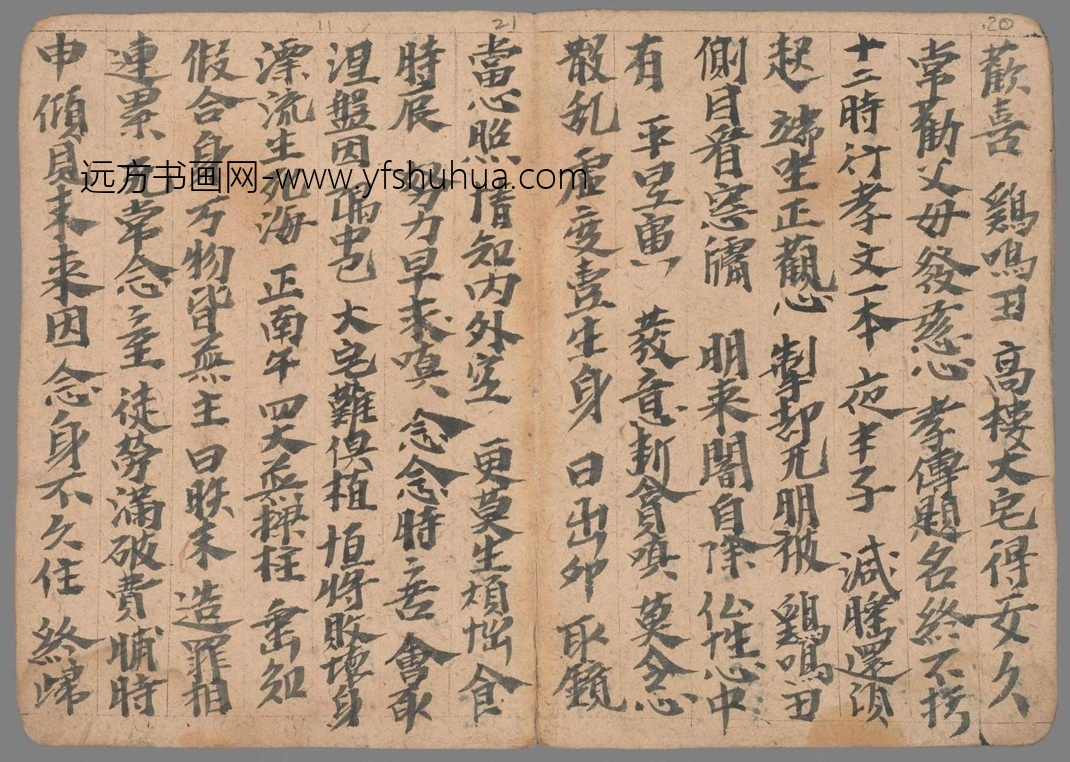 20
歡喜 鷄鳴丑 高樓大宅得安久
常勸父母發慈心 孝傳題名終不朽
十二時行孝文一本 夜半子 減睡還須
起 端坐正觀心 掣却无明被 鷄鳴丑
側目看窓牖 明来闇自除 仏性心中
有 平旦寅 發意斷貪嗔 莫令心
散乱 虛度一生身 日出卯 取鏡
21
當心照 情知内外空 更莫生煩惱 食
時辰 努力早求 念念時時苦 會取
涅盤因 隅中巳 大宅難俱 恒將敗壞身
漂流生死海 正南午 四大無樑柱 須知
假合身 万物皆無主 日昳未 造罪相
連累 念念常念至 徒勞漫破費 晡時
申 傾見未来因 念身不久住 終歸
11
远方书画网-www.yfshuhua.com